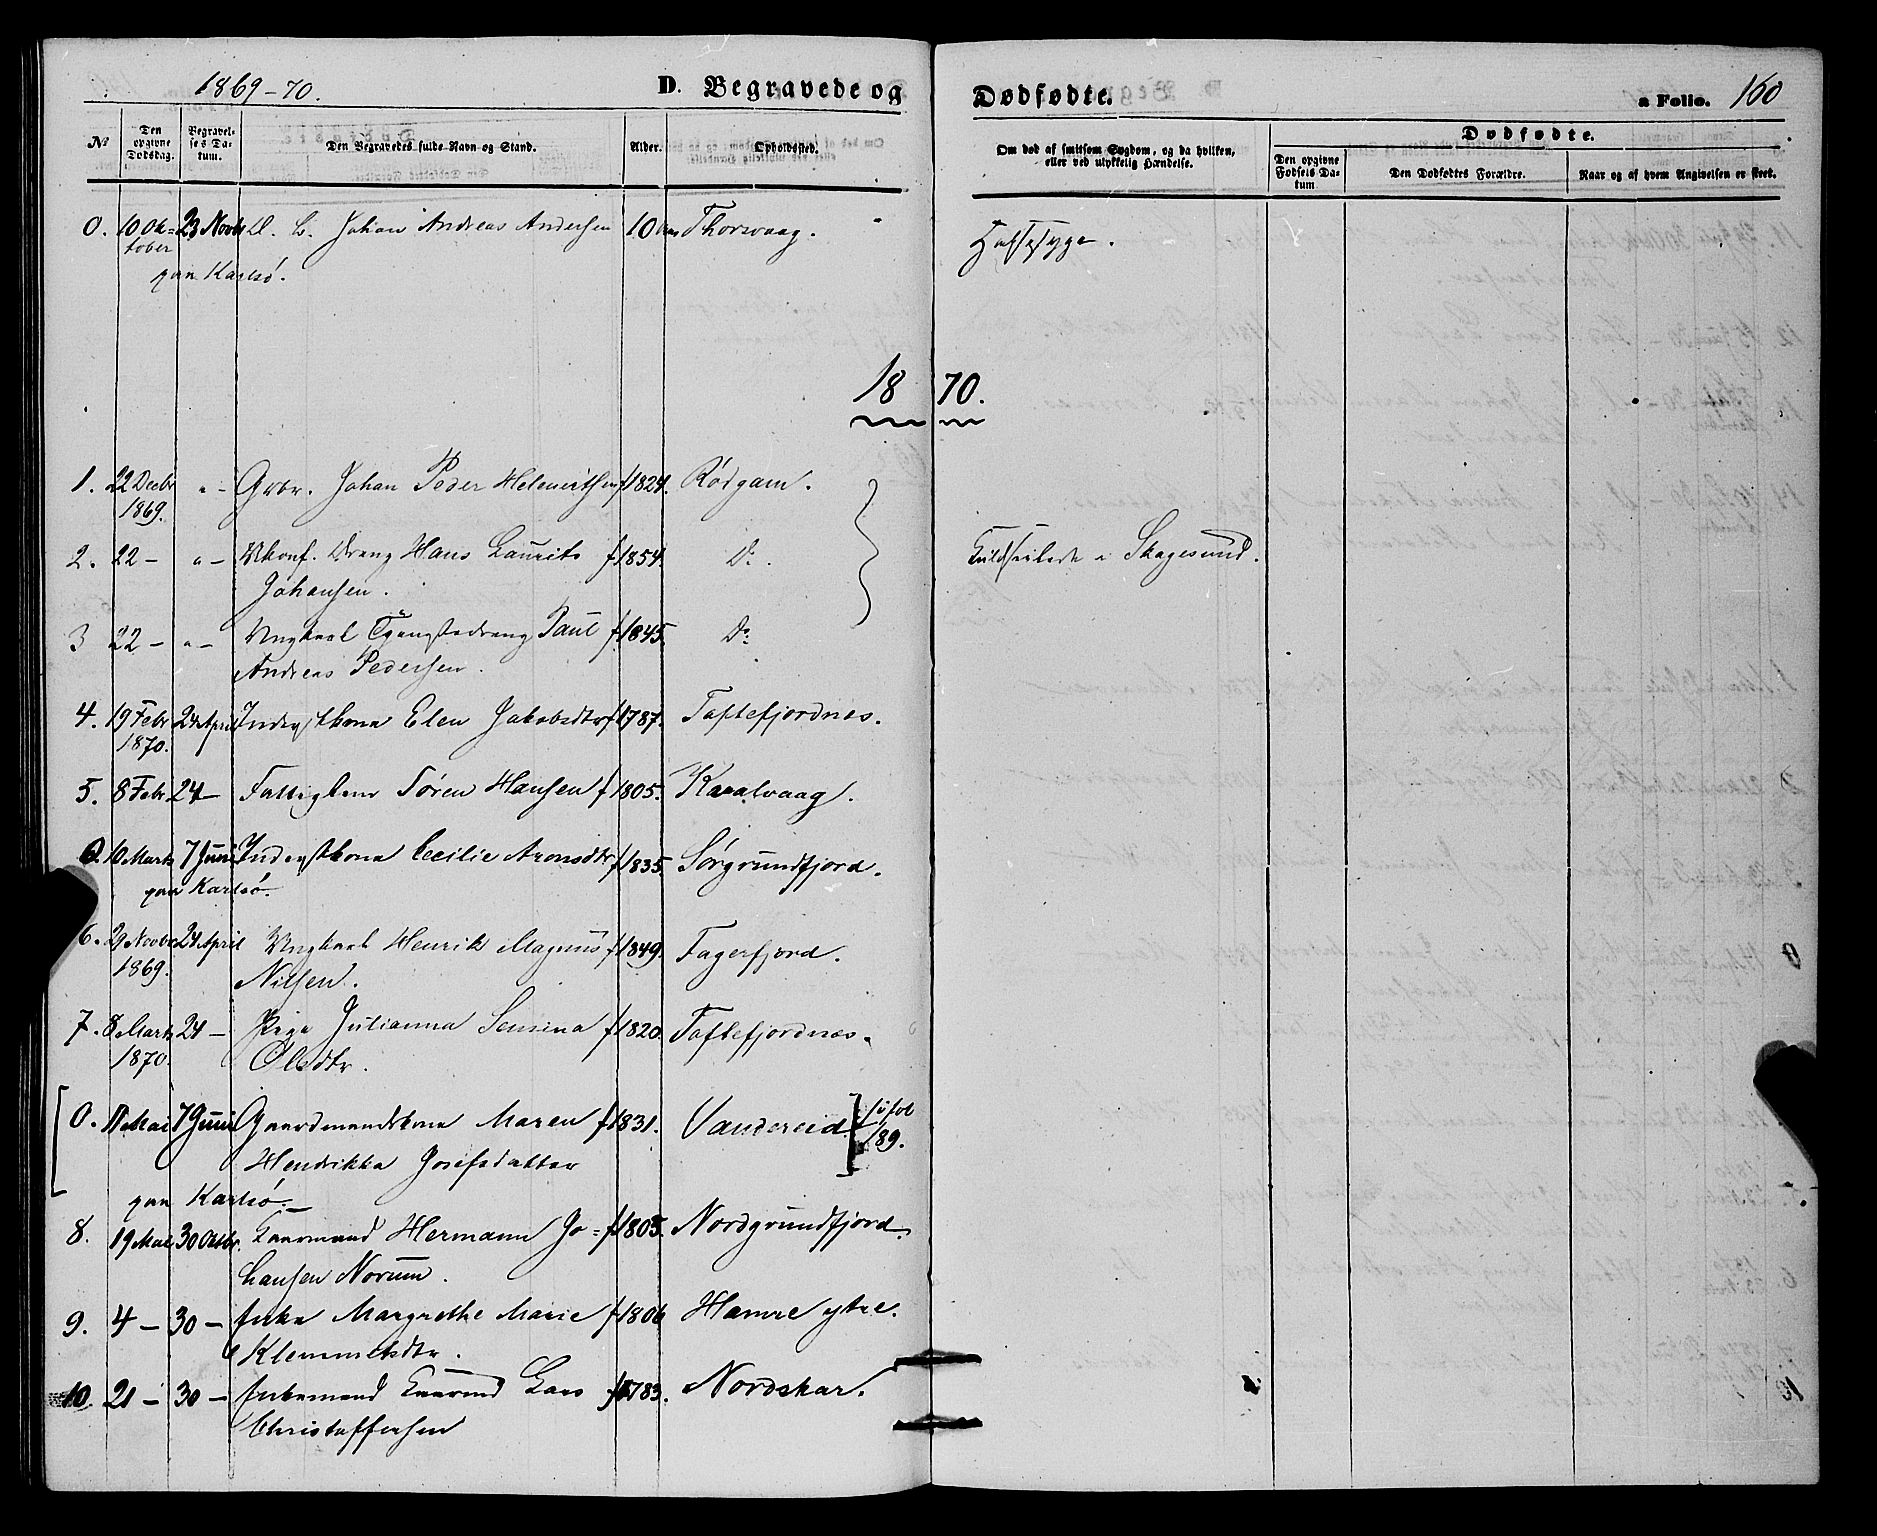 1869-70.
D. Begravede og
Dødfødte.
a Folio. 160
№
Den opgivne Dødsdag.
Begravelses Datum.
Den Begravedes fulde Navn og Stand.
Alder.
Opholdssted.
Om død af smitsom Sygdom, og da hvilken, eller ved ulykkelig Hændelse.
Dødfødte.
Den opgivne Fødsels Datum
Den Dødfødtes Forældre.
Naar og af hvem Angivelsen er skeet.
0. 10 Ok= 23 Novbr Johan Andreas Andersen 10 Thorsvaag.
tober
paa Karlsø.
1870.
1. 22 Decbr " - Grbr. Johan Peder Helmertsen f 1824. Rødgam.
1869.
2. 22 - " - Ukonf. Dreng Hans Laurits f 1854. Do.
Johansen.
Kuldseilede i Skagesund.
3 22 - " - Ungkarl Tjenestedreng Paul f 1845. Do.
Andreas Pedersen.
4. 19 Febr 24 April Inderstkone Elen Jakobsdtr f 1787. Toftefjordnes.
1870.
5. 8 Febr 24 - Fattiglem Søren Hansen f 1805. Kaalvaag.
0. 10 Marts 7 Juni Inderstkone Cecilie Aronsdtr f 1835. Sørgrundfjord.
paa Karlsø.
6. 29 Novbr 24 April Ungkarl Henrik Magnus f 1849. Fagerfjord.
1869. Nilsen.
7. 8 Marts 24 - Pige Julianna Semina f 1820. Toftefjordnes.
1870. Olsdtr.
0. 11 Mai 7 Juni Gaardmandskone Maren f 1831. Vandereid. fol
Hendrikka Josefsdatter 189.
paa Karlsø.
8. 19 Mai 30 Oktbr. Kaarmand Hermann Jo= f 1805. Nordgrundfjord.
hansen Norum.
9. 4 - 30 - Enke Margrethe Marie f 1806 Hamre ytre.
Klemmetsdtr.
10. 21 - 30 - Enkemand Kaarmd Lars f 1783. Nordskar.
Christoffersen